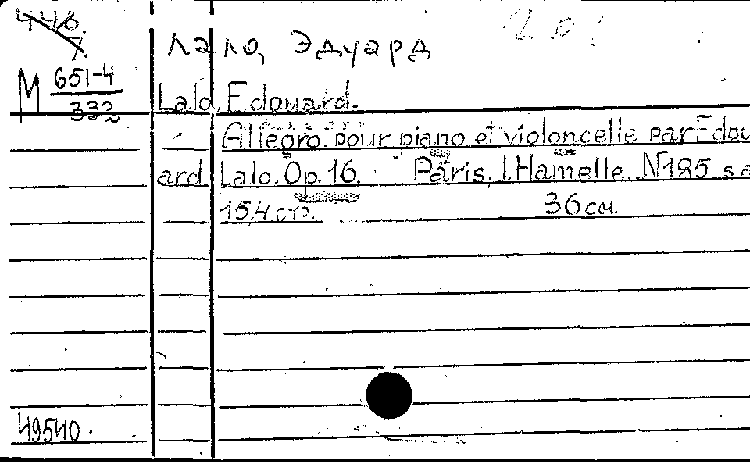 Лало, Эдуард
M 651-4
332
Lalo, Edouard.
Allegro pour piano et violoncelle par Edou
ard Lalo. Op. 16. Paris, J. Hamelle. N 185 s.a
15,4 стр. 36 см.
49540.